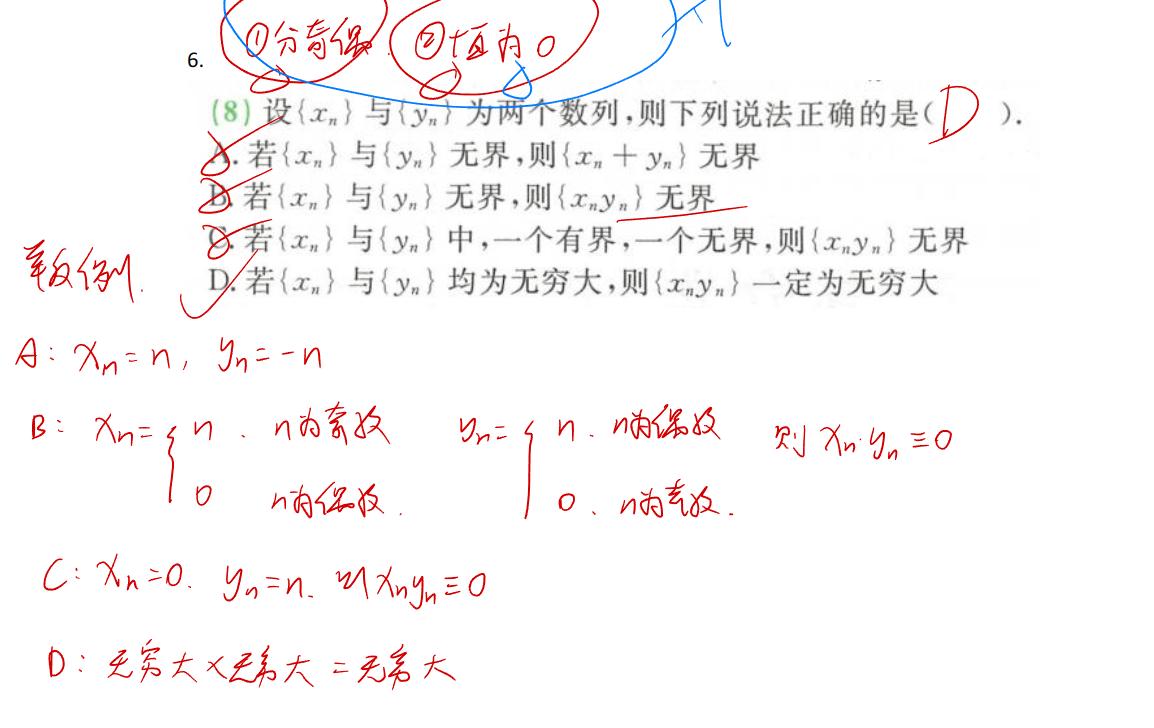 ①分奇偶. ②恒为0
6.
(8) 设{xₙ}与{yₙ}为两个数列,则下列说法正确的是( D ).
A. 若{xₙ}与{yₙ}无界,则{xₙ + yₙ}无界
B. 若{xₙ}与{yₙ}无界,则{xₙyₙ}无界
C. 若{xₙ}与{yₙ}中,一个有界,一个无界,则{xₙyₙ}无界
举反例.
D. 若{xₙ}与{yₙ}均为无穷大,则{xₙyₙ}一定为无穷大
A: xₙ=n, yₙ=-n
B: xₙ={ n . n为奇数 yₙ={ n . n为偶数 则 xₙ·yₙ≡0
0 n为偶数. 0 . n为奇数.
C: xₙ=0. yₙ=n. 则xₙyₙ≡0
D: 无穷大×无穷大=无穷大